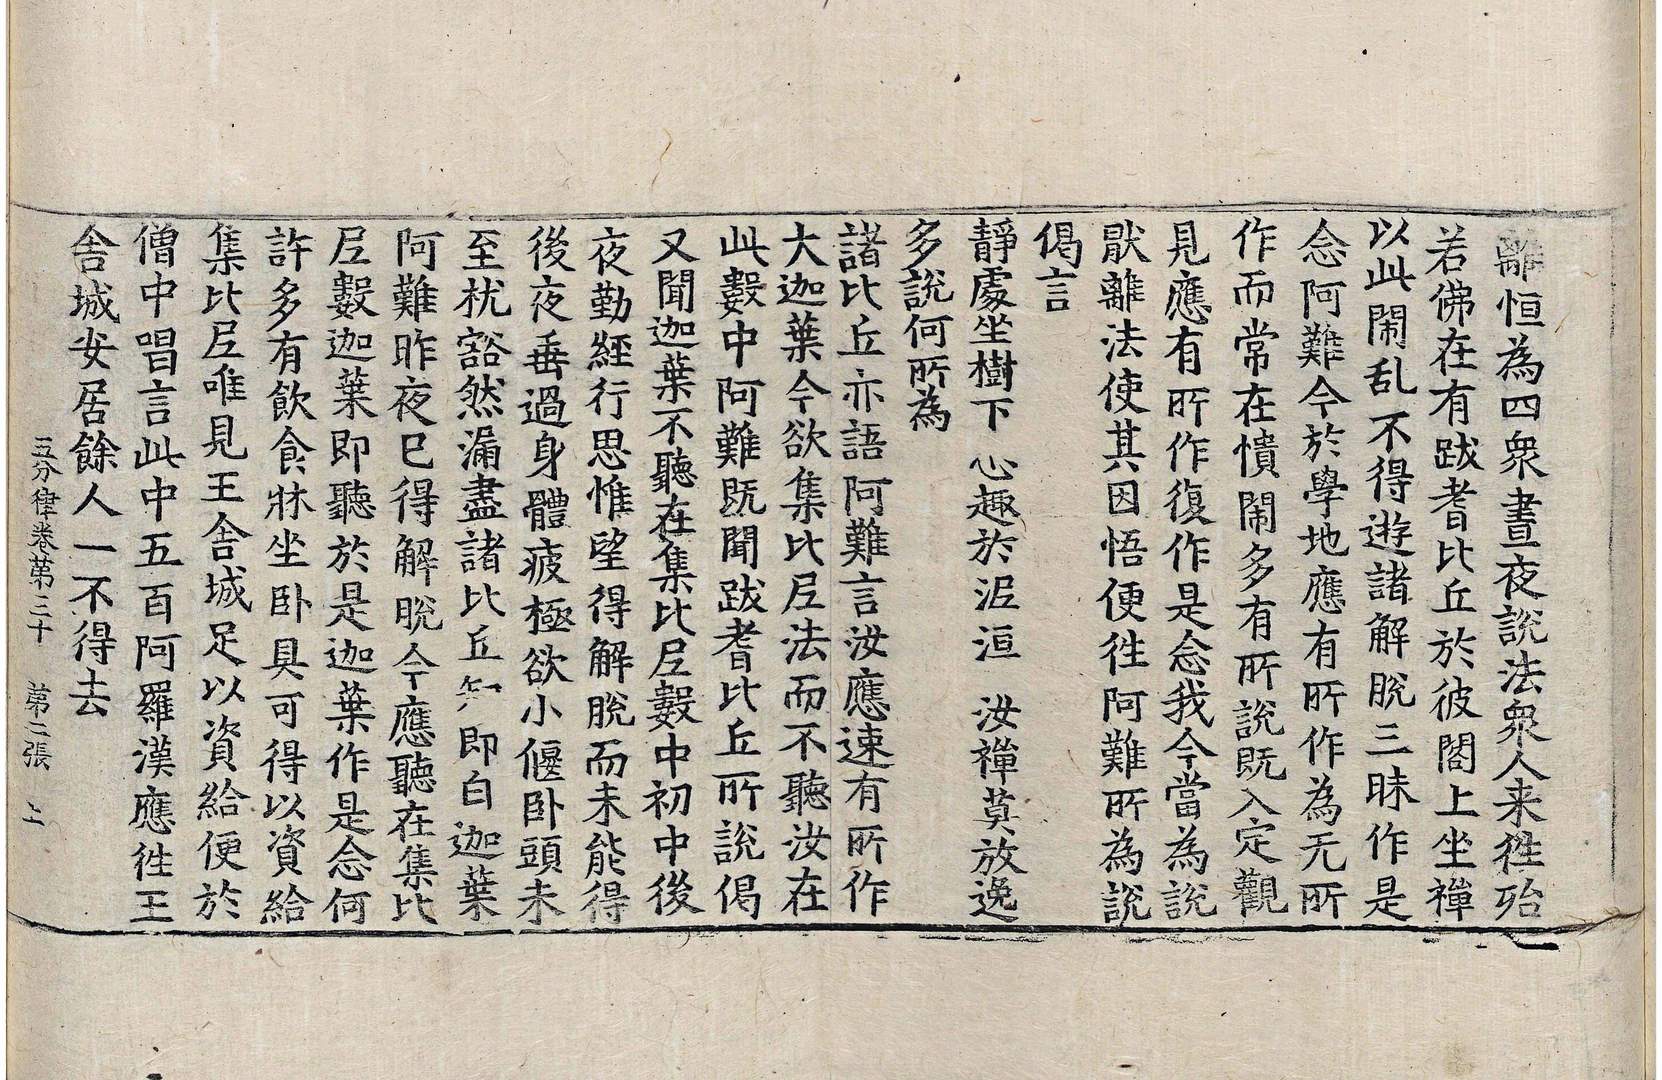 離恒為四衆晝夜說法衆人来徃殆
若佛在有跋耆比丘於彼閣上坐禪
以此閙乱不得遊諸解脫三昧作是
念阿難今於學地應有所作為无所
作而常在憒閙多有所說旣入定觀
見應有所作復作是念我今當為說
猒離法使其因悟便徃阿難所為說
偈言
靜處坐樹下 心趣於泥洹 汝禪莫放逸
多說何所為
諸比丘亦語阿難言汝應速有所作
大迦葉今欲集比尼法而不聽汝在
此數中阿難旣聞跋耆比丘所說偈
又聞迦葉不聽在集比尼數中初中後
夜勤經行思惟望得解脫而未能得
後夜垂過身體疲極欲小偃卧頭未
至枕豁然漏盡諸比丘知即白迦葉
阿難昨夜已得解脫今應聽在集比
尼數迦葉即聽於是迦葉作是念何
許多有飲食牀坐卧具可得以資給
集比尼唯見王舍城足以資給便於
僧中唱言此中五百阿羅漢應徃王
舍城安居餘人一不得去
五分律卷第三十 第二張